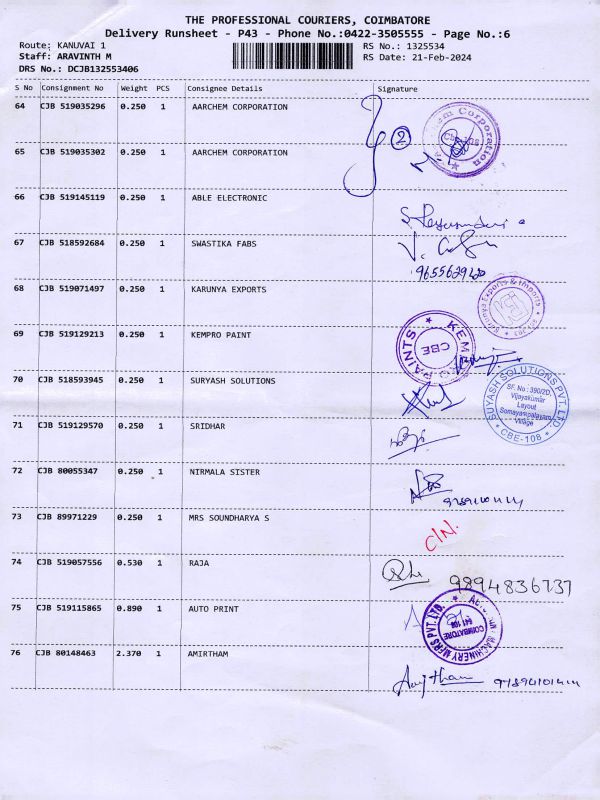 THE PROFESSIONAL COURIERS, COIMBATORE
Delivery Runsheet - P43 - Phone No.:0422-3505555 - Page No.:6
Route: KANUVAI 1 RS No.: 1325534
Staff: ARAVINTH M RS Date: 21-Feb-2024
DRS No.: DCJB132553406
S No Consignment No Weight PCS Consignee Details Signature
64 CJB 519035296 0.250 1 AARCHEM CORPORATION
2
65 CJB 519035302 0.250 1 AARCHEM CORPORATION
66 CJB 519145119 0.250 1 ABLE ELECTRONIC
67 CJB 518592684 0.250 1 SWASTIKA FABS
68 CJB 519071497 0.250 1 KARUNYA EXPORTS
69 CJB 519129213 0.250 1 KEMPRO PAINT
CBE
70 CJB 518593945 0.250 1 SURYASH SOLUTIONS
SUYASH SOLUTIONS PVT. LTD.
SF. No : 390/2D,
Vijayakumar
Layout
Somayampalayam
Village
* CBE-108 *
71 CJB 519129570 0.250 1 SRIDHAR
72 CJB 80055347 0.250 1 NIRMALA SISTER
73 CJB 89971229 0.250 1 MRS SOUNDHARYA S
C/N.
74 CJB 519057556 0.530 1 RAJA
9894836737
75 CJB 519115865 0.890 1 AUTO PRINT
MACHINERY MFRS PVT. LTD.
COIMBATORE
641 108
76 CJB 80148463 2.370 1 AMIRTHAM